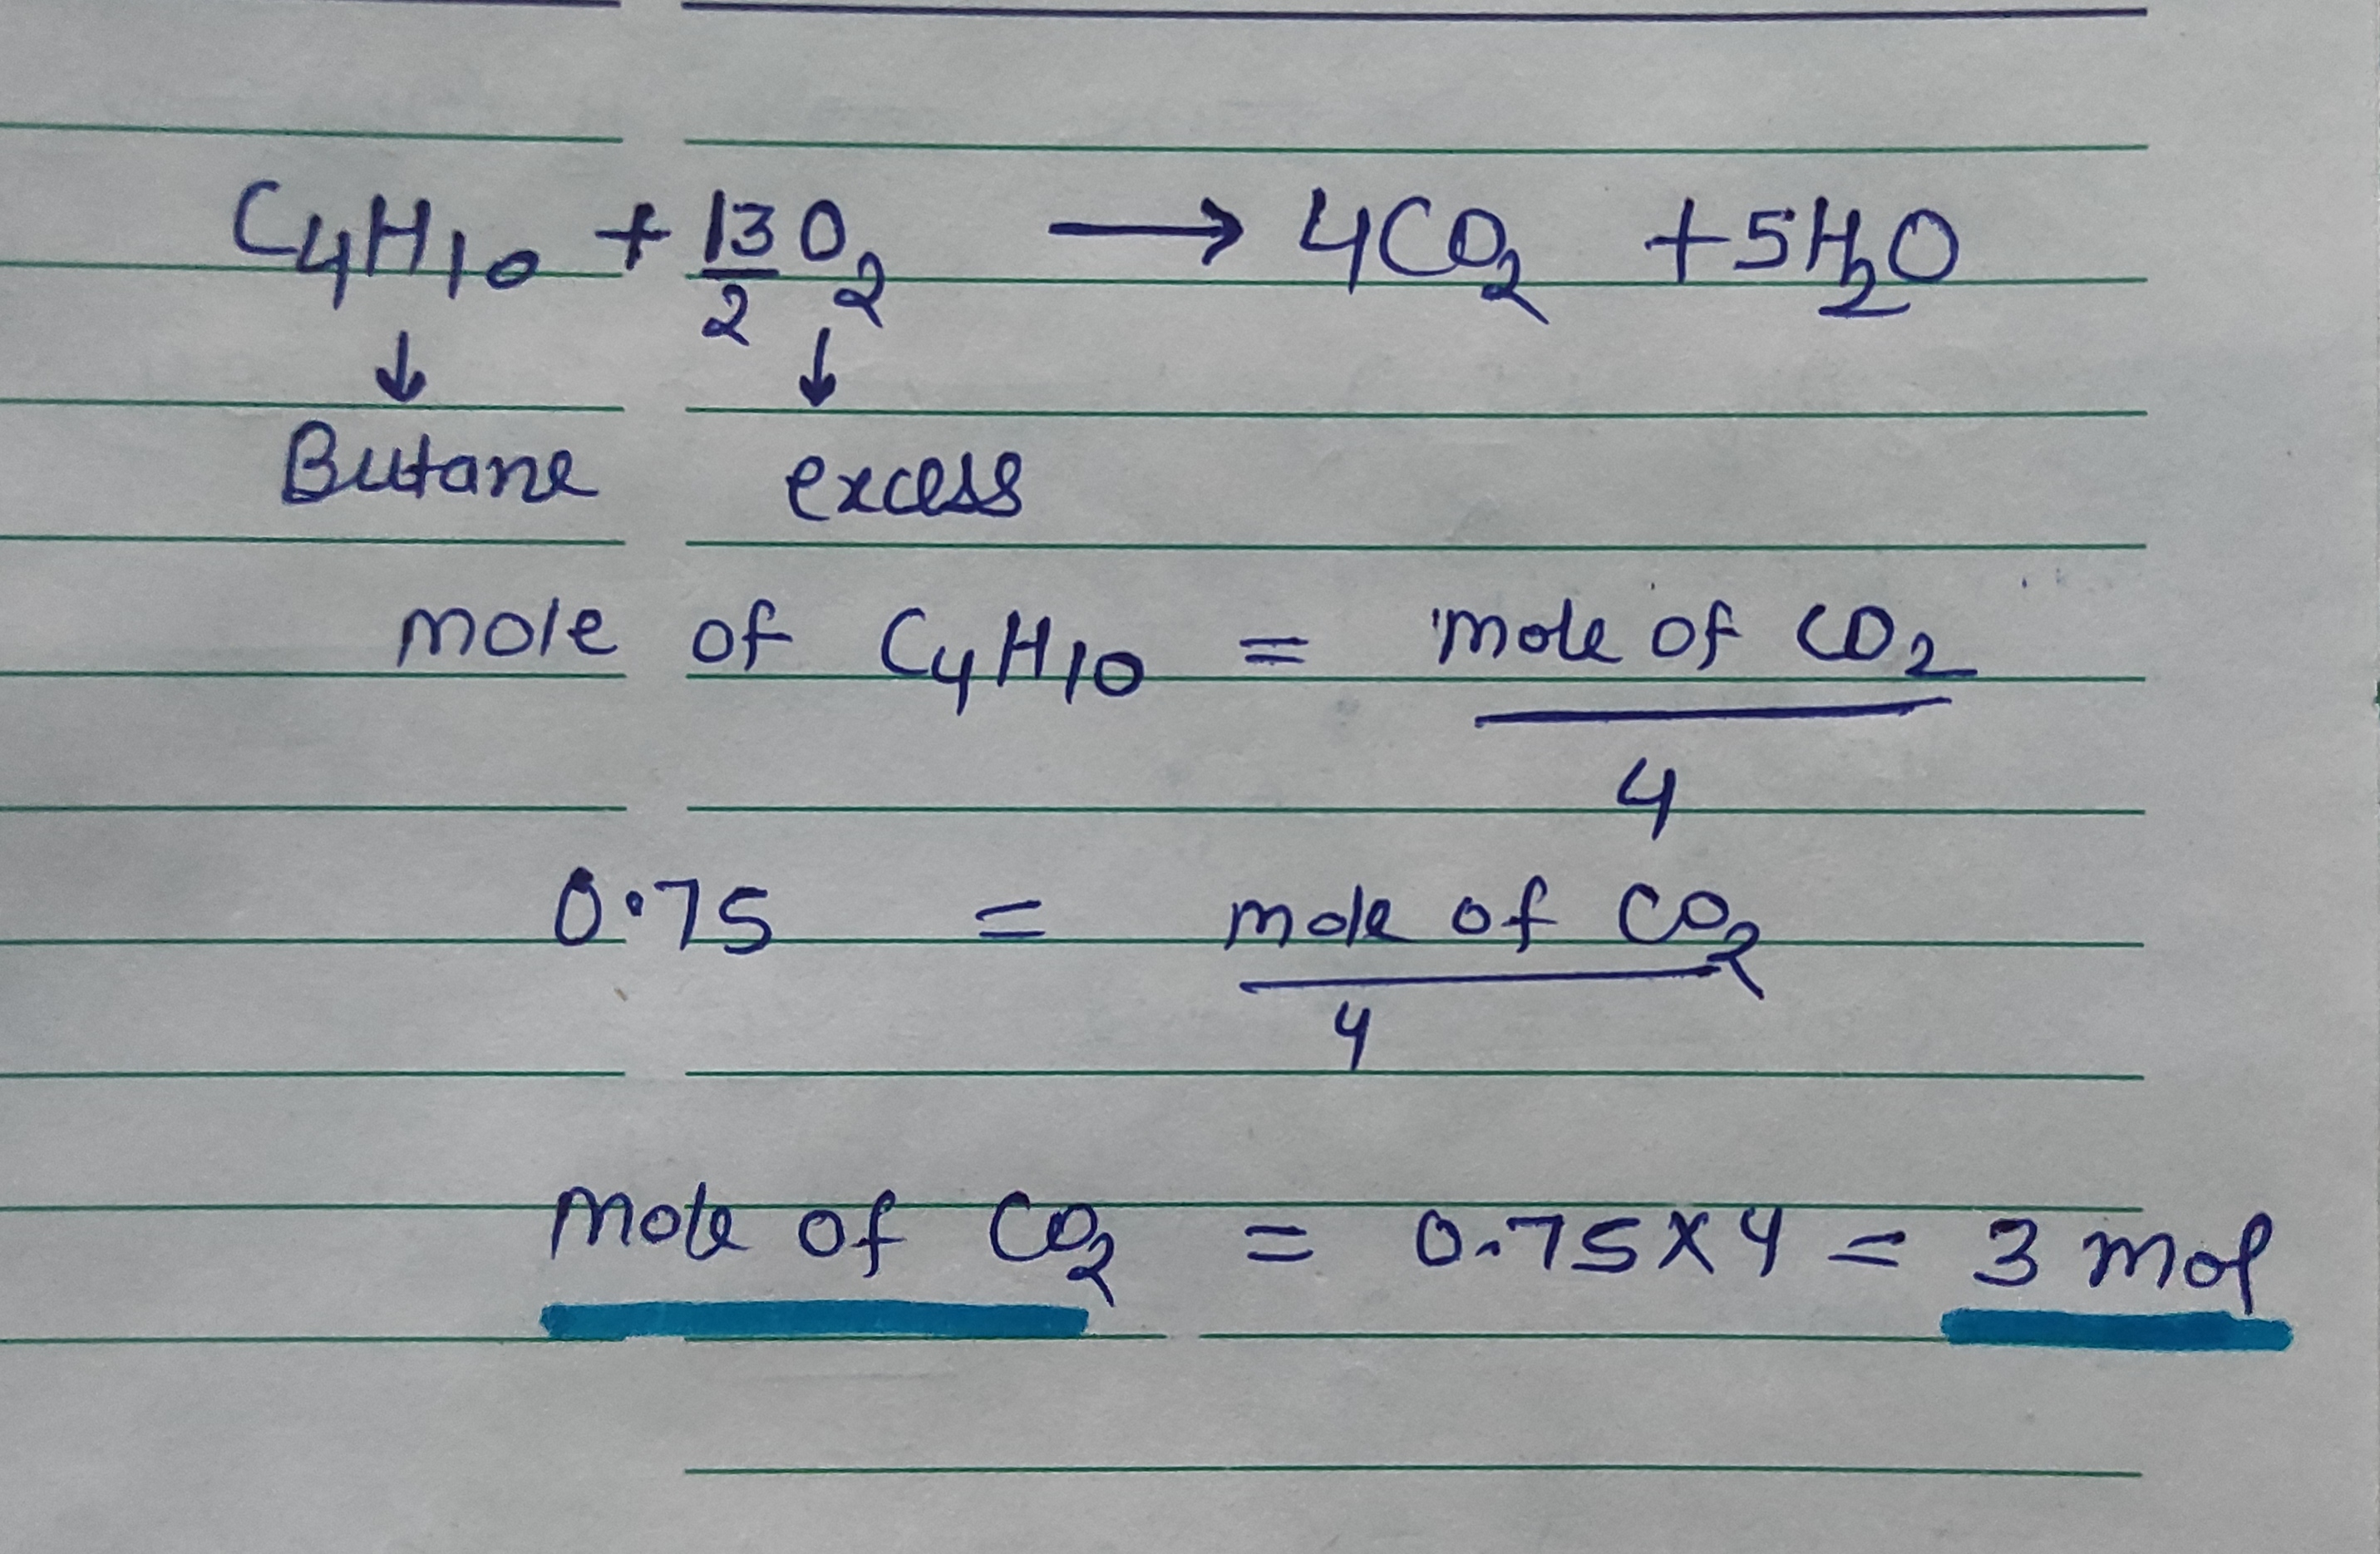 C₄H₁₀ + 13/2 O₂ → 4CO₂ + 5H₂O
↓ ↓
Butane excess
mole of C₄H₁₀ = mole of CO₂
4
0.75 = mole of CO₂
4
mole of CO₂ = 0.75 × 4 = 3 mol